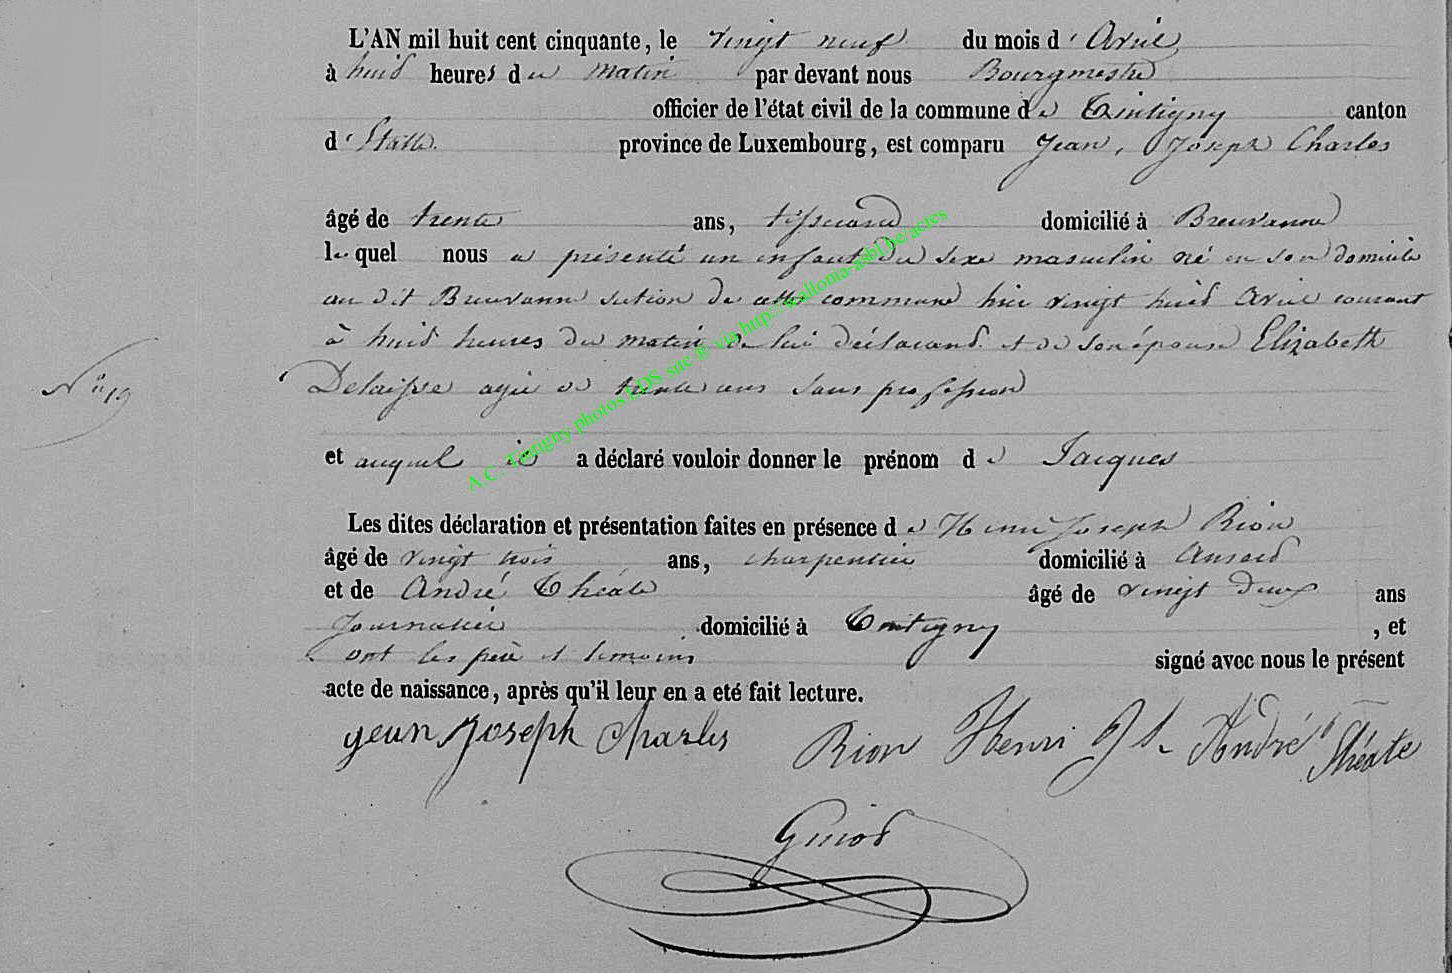 L'AN mil huit cent cinquante, le vingt neuf du mois d'Avril
à huid heures du matin par devant nous Bourgmestre
officier de l'état civil de la commune de Tintigny canton
d'Etalle. province de Luxembourg, est comparu Jean, Joseph Charles
âgé de trente ans, tisserand domicilié à Breuvanne
lequel nous a présenté un enfant du sexe masculin né en son domicile
au dit Breuvanne section de cette commune hier vingt huid Avril courant
à huid heures du matin de lui déclarand et de son épouse Elizabeth
N° 19 Delaisse agée de trente ans sans profession
et auquel il a déclaré vouloir donner le prénom de Jacques
Les dites déclaration et présentation faites en présence de Henri Joseph Rion
âgé de vingt trois ans, charpentier domicilié à Ansard
et de André Théate âgé de vingt deux ans
Journalier domicilié à Tintigny , et
ont les père et témoins signé avec nous le présent
acte de naissance, après qu'il leur en a eté fait lecture.
jean joseph charles Rion Henri Jh André Théate
Guiod
A.C. Tintigny photos EDS site ® via http://walloma-asbl.be/actes